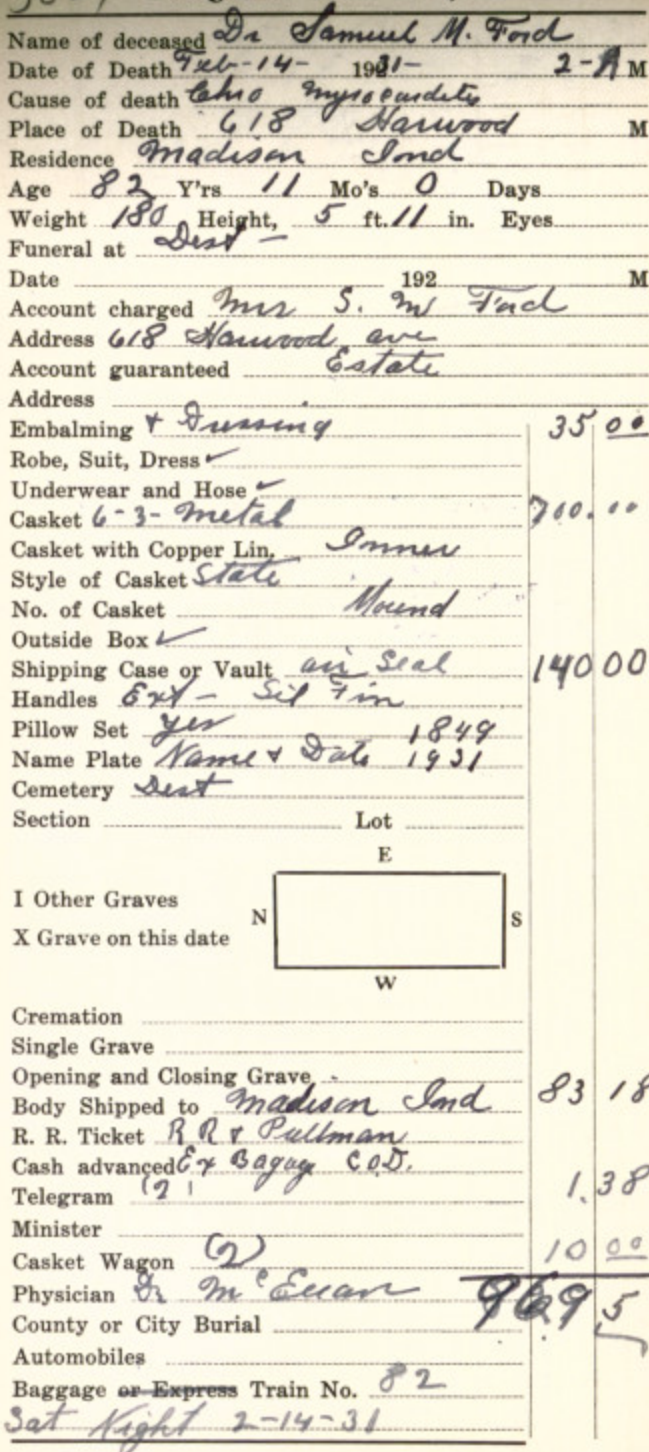 Name of deceased Dr Samuel M. Ford
Date of Death Feb-14- 1931- 2-A M
Cause of death Chro Myrocarditis
Place of Death 618 Harwood M
Residence Madison Ind
Age 82 Y'rs 11 Mo's 0 Days
Weight 180 Height, 5 ft. 11 in. Eyes
Funeral at Dest -
Date 192 M
Account charged Mrs S. M Ford
Address 618 Harwood ave
Account guaranteed Estate
Address
Embalming & Dressing 35 00
Robe, Suit, Dress ✓
Underwear and Hose ✓
Casket 6-3- Metal 700.00
Casket with Copper Lin. Inner
Style of Casket State
No. of Casket Mound
Outside Box ✓
Shipping Case or Vault air Seal 140 00
Handles Ext - Sil Fin
Pillow Set yes 1849
Name Plate Name & Date 1931
Cemetery Dest
Section Lot
E
I Other Graves
N S
X Grave on this date
W
Cremation
Single Grave
Opening and Closing Grave
Body Shipped to Madison Ind 83 18
R. R. Ticket RR & Pullman
Cash advanced Ex Bagage C.O.D.
Telegram (2) 1.38
Minister
Casket Wagon (2) 10 00
Physician Dr McEuan 969 5
County or City Burial
Automobiles
Baggage or Express Train No. 82
Sat Night 2-14-31